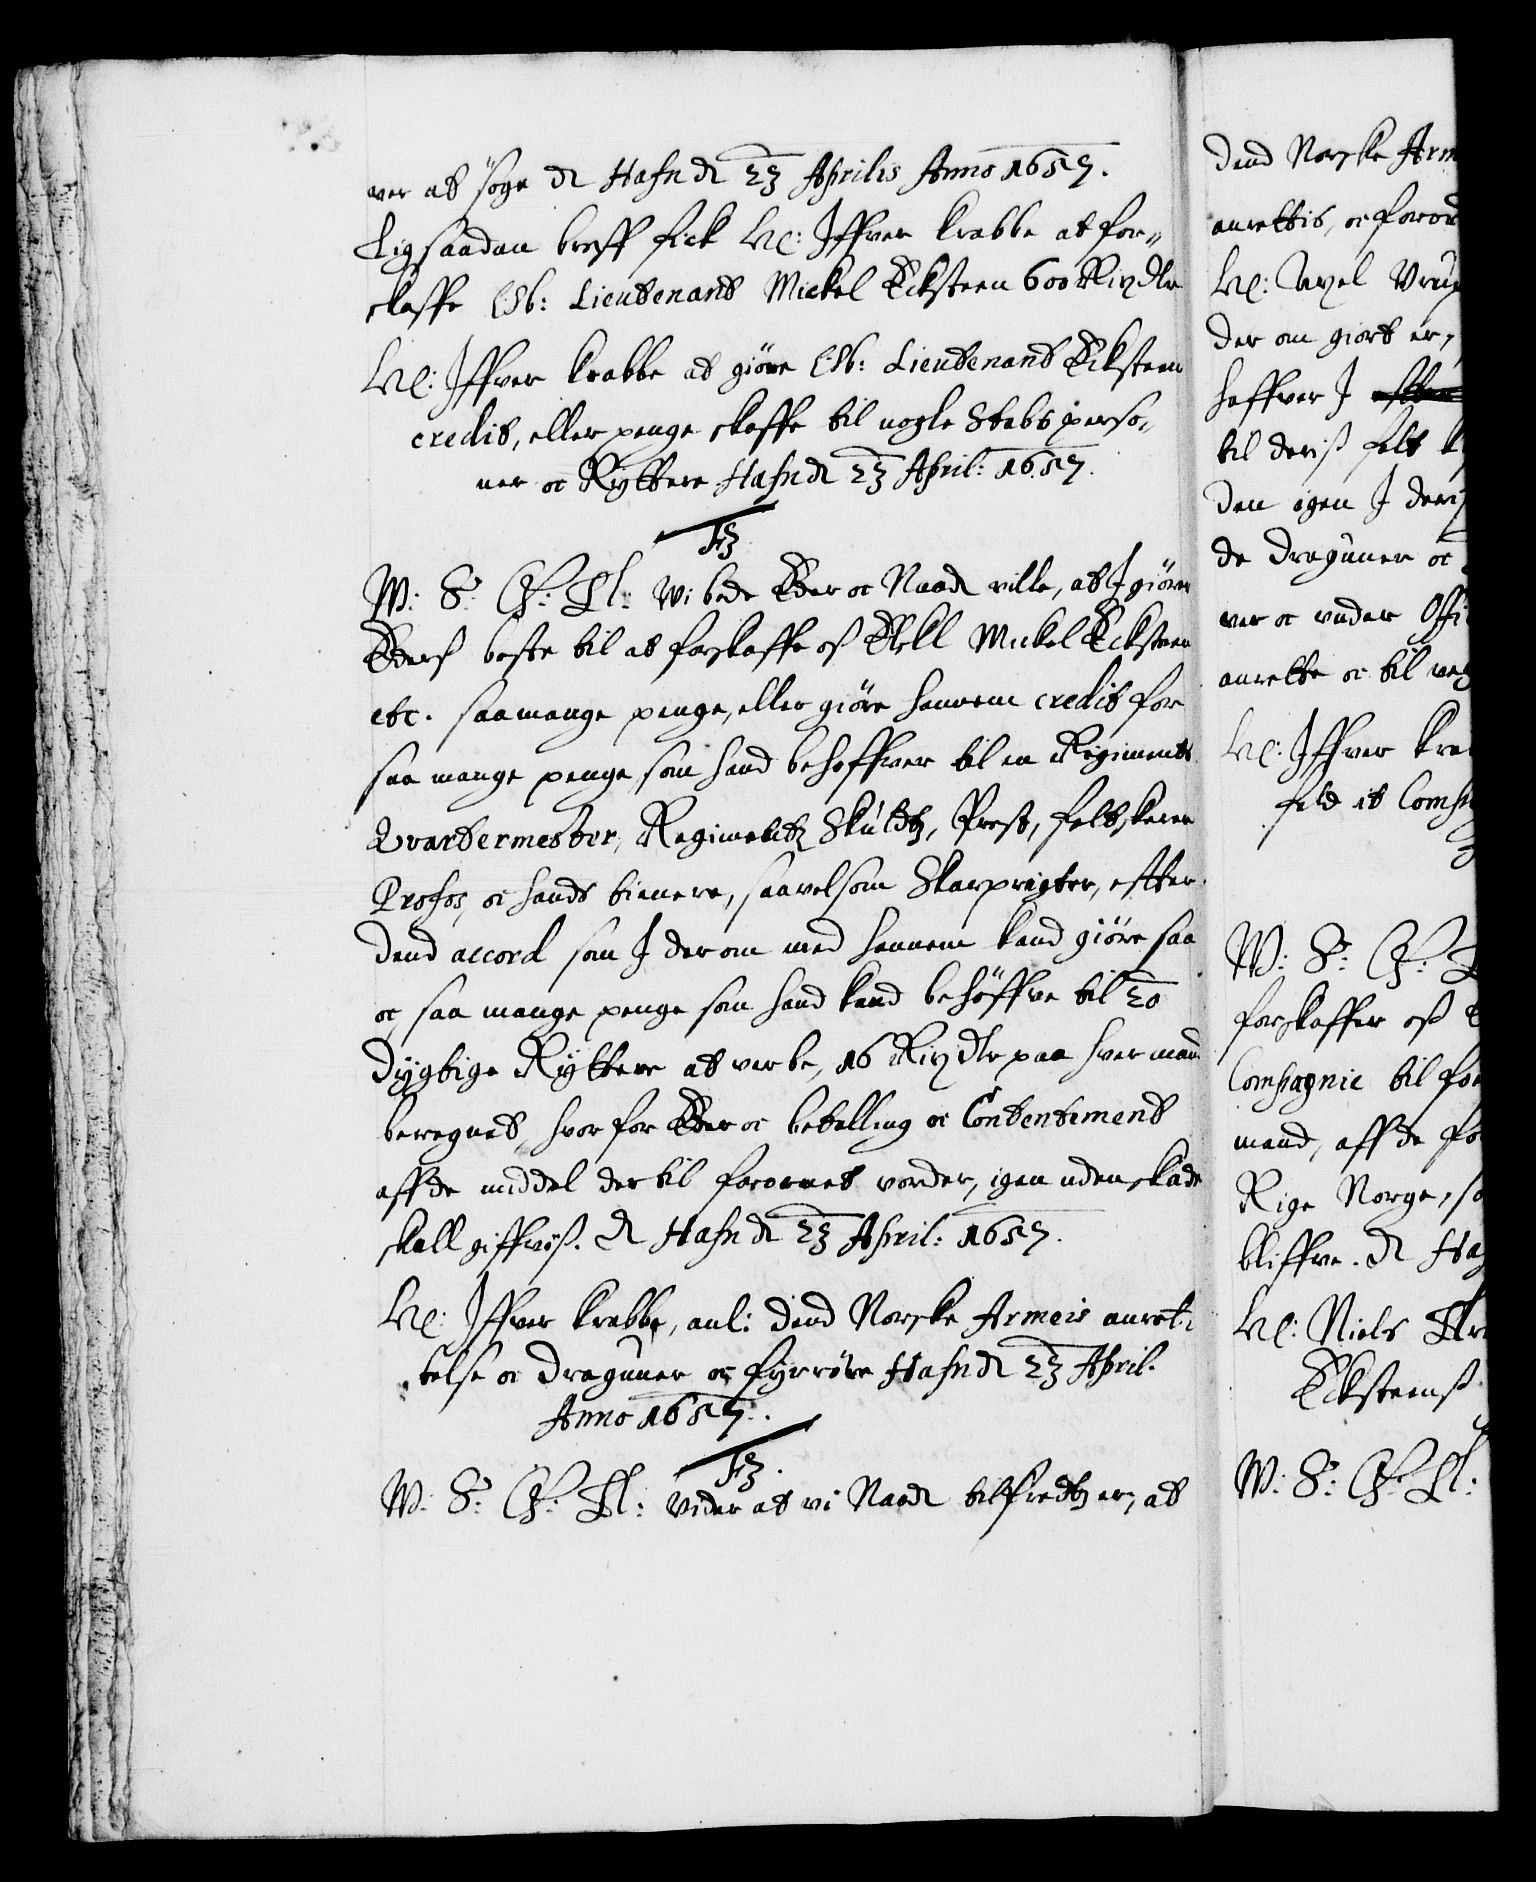 ver at søge etc Hafn etc 23 Aprilis Anno 1657.
Ligsaadan breff fick He: Iffver Krabbe at for„
skaffe Obr: Lieutenant Mickel Ecksteen 600 Rixdlr
He: Iffver Krabbe at giöre Obr: Lieutenant Ecksteen
credit, eller penge skaffe til nogle Stabs perso„
ner oc Ryttere Hafn etc 23 April: 1657.
F3
W: S: G: Pl: Wi bede Eder oc Naadt ville, at I giörer
Eders beste til at forskaffe oss Elskl Mickel Ecksteen
etc. saa mange penge, eller giöre hannem credit for
saa mange penge, som hand behoffver til en Regiments
Qvartermester, Regimentz Skultz, Prest, feltskerer
Profos, oc hands tienere, saavelsom Skarprigter, efter
dend accord som I der om med hannem kand giöre saa
oc saa mange penge som hand kand behöffve til 20
dygtige Ryttere at verbe, 16 Rixdlr paa hver mand
beregnet, hvor for Eder oc betalling oc Contentement
aff de middel der til forornet vorder, igen uden skade
skall giffvis. etc Hafn etc 23 April: 1657.
He: Iffver Krabbe, anl: dend Norske Armeis anret„
telse oc draguner oc fyrröre Hafn etc 23 April.
Anno 1657.
F3.
W: S: G: Pl: Vider at vi Naadt tilfredtz er, at
dend Norske
anrettis, oc
He: Axel
der om giort er,
haffver I
til deriss felt
den igen I
de draguner oc
ver oc under
anrette oc til
He: Iffver
feld it
W: S: G:
forskaffer oss
Compagnie til
mand, aff de
Rige Norge,
bliffve. etc
He: Niels
Ecksteenss
W: S: G: Pl: